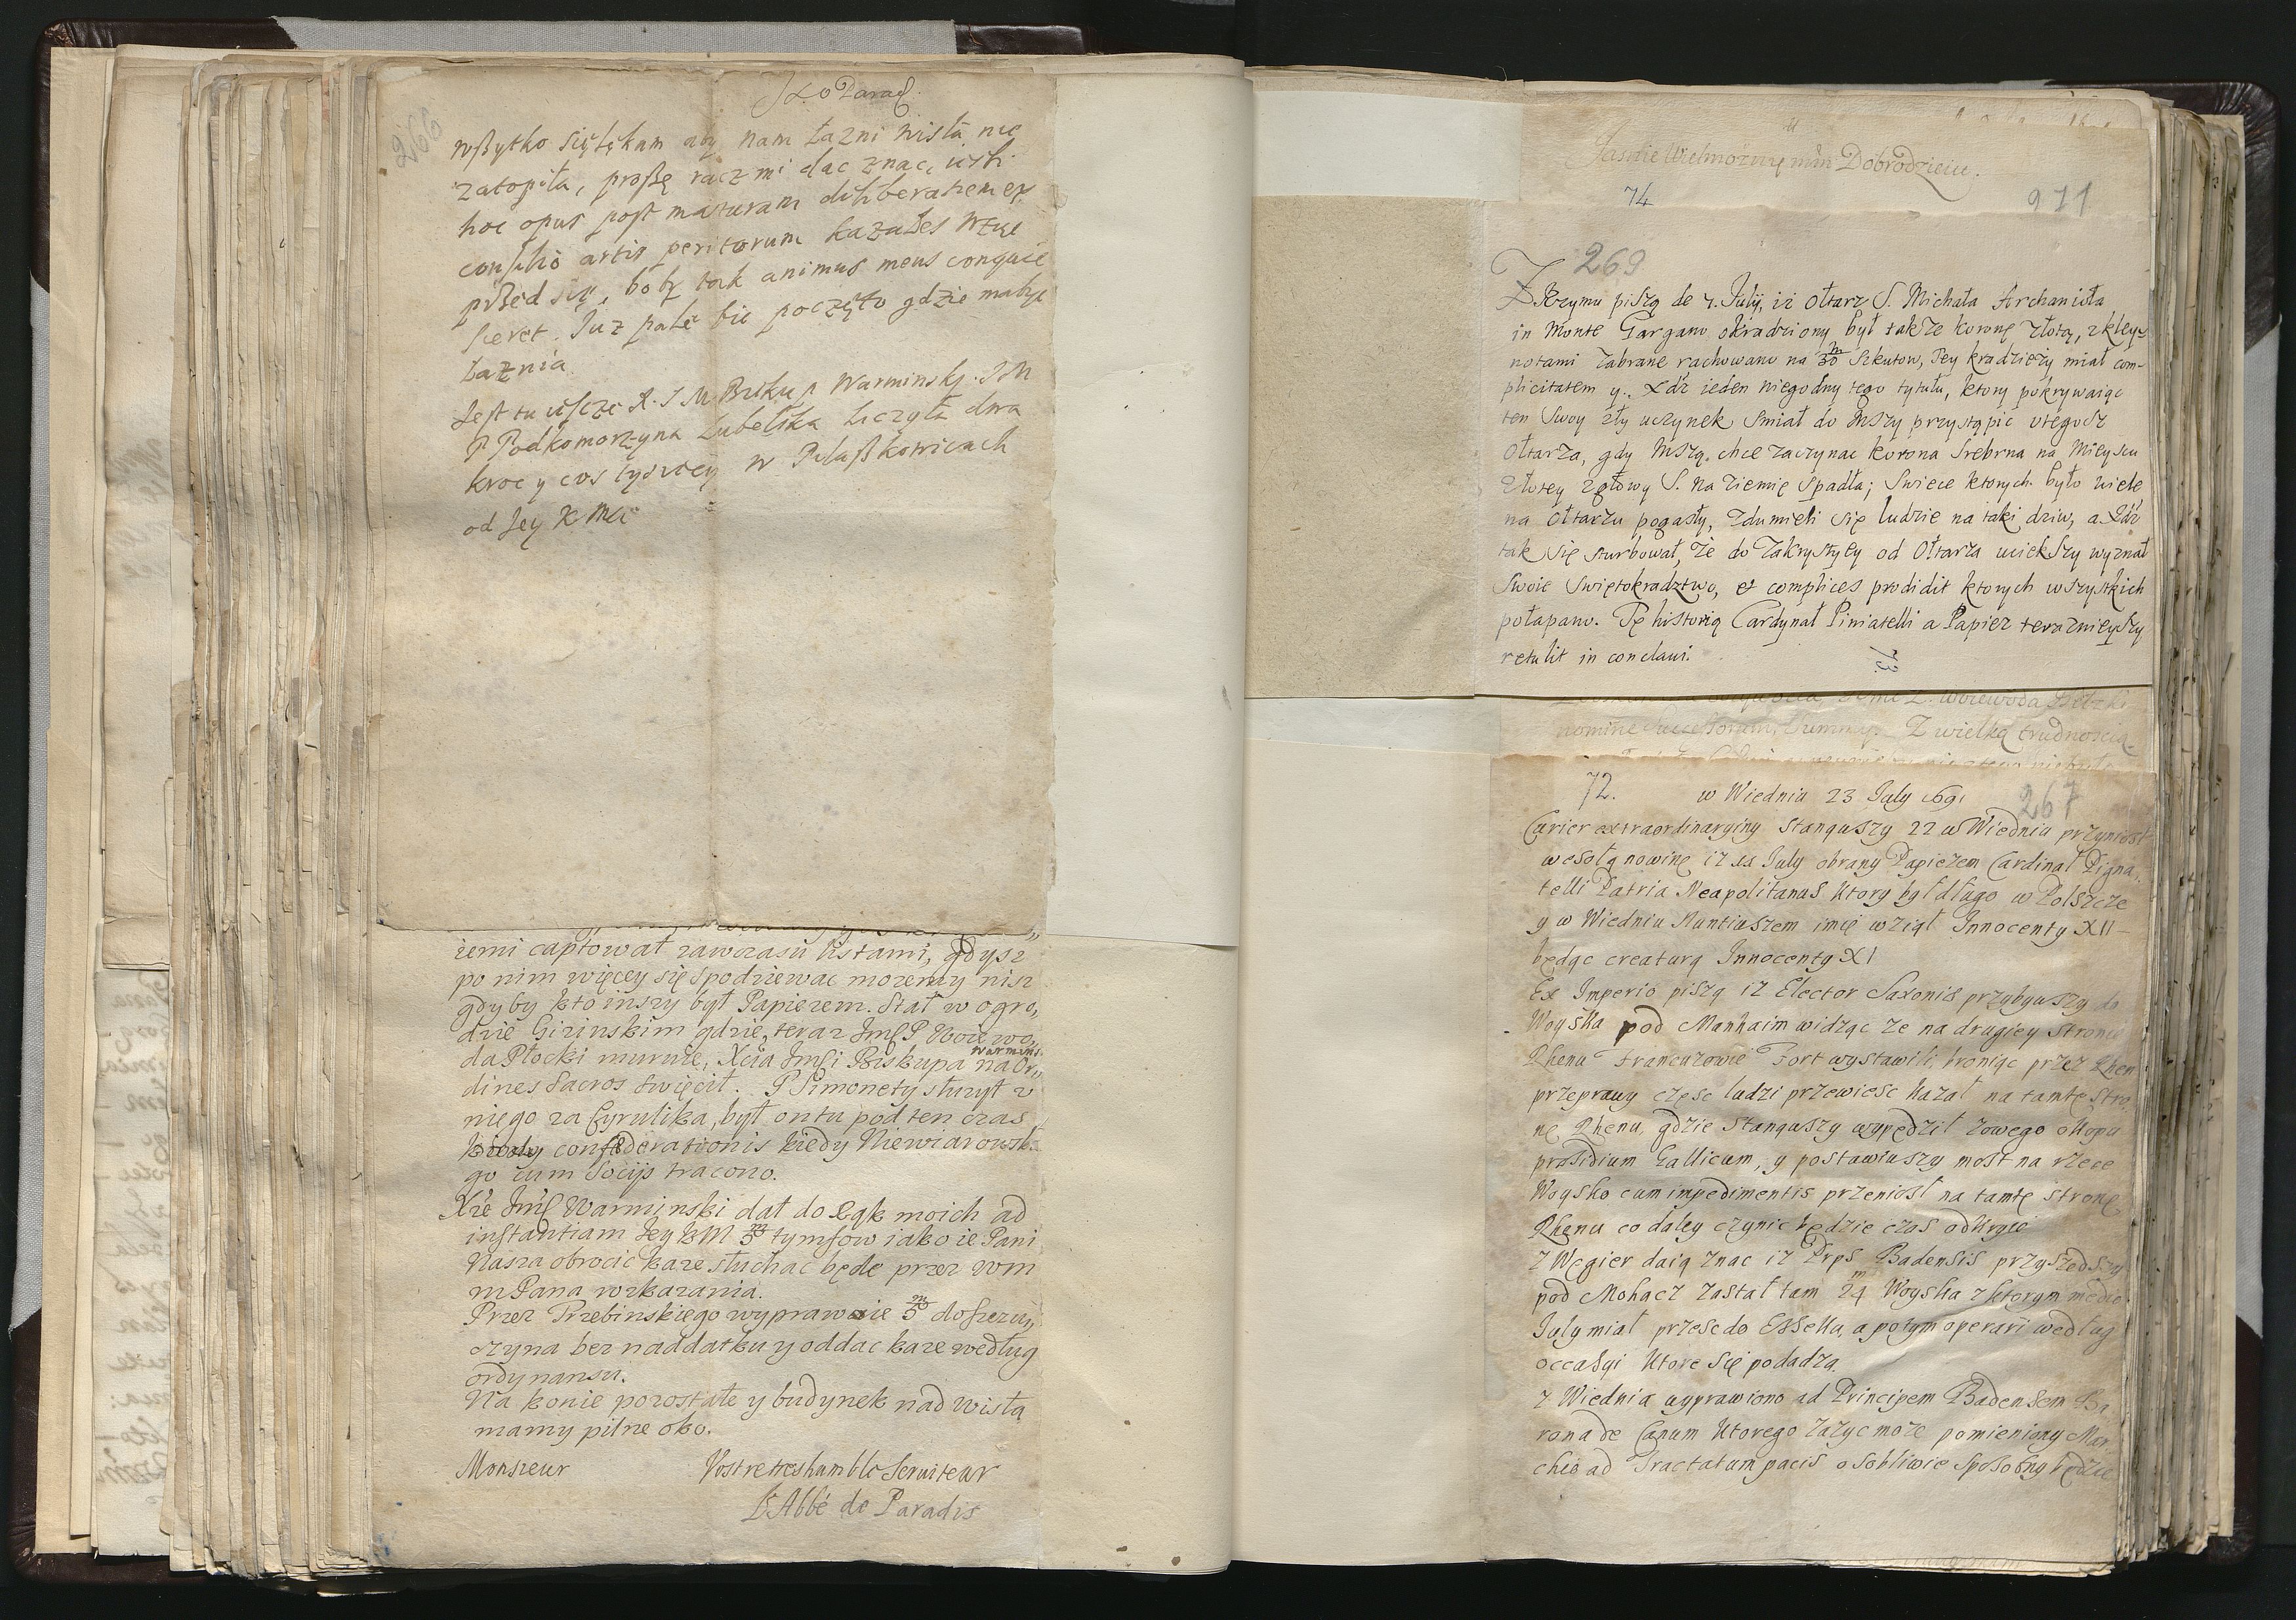 266
wßytko się lękam aby nam Łazni Wisła nie
zatopiła, proßę racz mi dac znac, iesli
hoc opus post maturam deliberationem ex
consilio artis peritorum kazałes WZiąc
przed się, bo by tak animus meus conquie
sceret. Iuz pale bic poczęto gdzie ma byc
Łaznia
Jest tu ieszcze X. J M Biskup Warminsky. JM
P Podkomorzyna Lubelska Liczyła dwa
kroc y cos tysięcy w Pulaßkowicach
od Jey K Mci
iemi captował zawczasu listami, gdysz
po nim więcey się spodziewac mozemy nisz
gdyby kto inszy był Papiezem. Stał w ogro„
dzie Girinskim gdzie teraz Jmſ P Woiewo„
da Płocki muruie, Xcia Jmſci Biskupa Warmins. na Or„
dines Sacros święcił. P Simonety słuzył v
niego za Cyrulika, był on tu pod ten czas
kiedy confœderationis kiedy Niewiarowsk„
go cum Socijs tracono.
Xże Jmſ Warminski dał do Rąk moich ad
instantiam Jey KM 3 m tymfow iako ie Pani
Nasza obrocic kaze słuchac będe przez Wm
m Pana rozkazania.
Przez Trzebinskiego wyprawuie 3 m do Jezu„
czyna bez naddatku y oddac kaze według
ordynansu.
Na konie pozostałe y budynek nad Wisłą
mamy pilne oko.
Monsieur Vostre treshumble Serviteur
L'Abbé de Paradis
Jasnie Wielmozny mśn Dobrodzieiu.
74 971
269
Z Rzymu piszą de 7. July, iż Ołtarz S. Michała Archanioła
in Monte Gargano okradziony był także koronę złotą, z kley„
notami zabrane rachowano na 30 m Szkutow, Tey kradzieży miał com„
plicitatem y. Xdz ieden niegodny tego tytułu, ktory pokrywaiąc
ten swoy zły uczynek smiał do Mszy przystąpic u tegosz
Ołtarza, gdy Mszą chce zaczynac korona Srebrna na Mieyscu
Złotey z głowy S. na ziemię spadła; Swiece ktorych było wiele
na Ołtarzu pogasły, zdumieli się ludzie na taki dziw, a Xdz
tak się sturbował, że do Zakrystyey od Ołtarza uciekszy wyznał
Swoie Swiętokradztwo, et complices prodidit ktorych wszystkich
połapano. Tę historią Cardynał Piniatelli a Papiez terazniejszy
retulit in conclavi.
73
nomine Successorum, Summy. Z wielką trudnoscią
72. w Wiedniu 23 July 1691 267
Curier extraordinaryiny stanąwszy 22 w Wiedniu przyniosł
wesołą nowinę iz 12 July obrany Papiezem Cardinał Pigna„
telli Patria Neapolitanus ktory był długo w Polszcze
y w Wiedniu Nuntiuszem imię wziął Innocenty XII
będąc creaturą Innocenty XI
Ex Imperio piszą iz Elector Saxonis przybywszy do
Woyska pod Manhaim widząc ze na drugiey stronie
Rhenu Francuzowie Fort wystawili, broniąc przez Rhen
przeprawy częsc ludzi przewiesc kazał na tamtę stro„
nę Rhenu, gdzie stanąwszy wypędził z owego okopu
præsidium Gallicum, y postawiwszy most na rzece
Woysko cum impedimentis przeniosł na tamtę stronę
Rhenu co daley czynic będzie czas odkryie
Z Węgier daią znac iz Prps Badensis przyszedszy
pod Mohacz zastał tam 24 m Woyska z ktorym medio
July miał przesc do Esseka, a potym operari według
occasyi ktore się podadzą
z Wiednia wyprawiono ad Principem Badensem Ba„
rona de Canum ktorego zazyc może pomieniony Mar„
chio ad Tractatum pacis osobliwie sposobny będzie